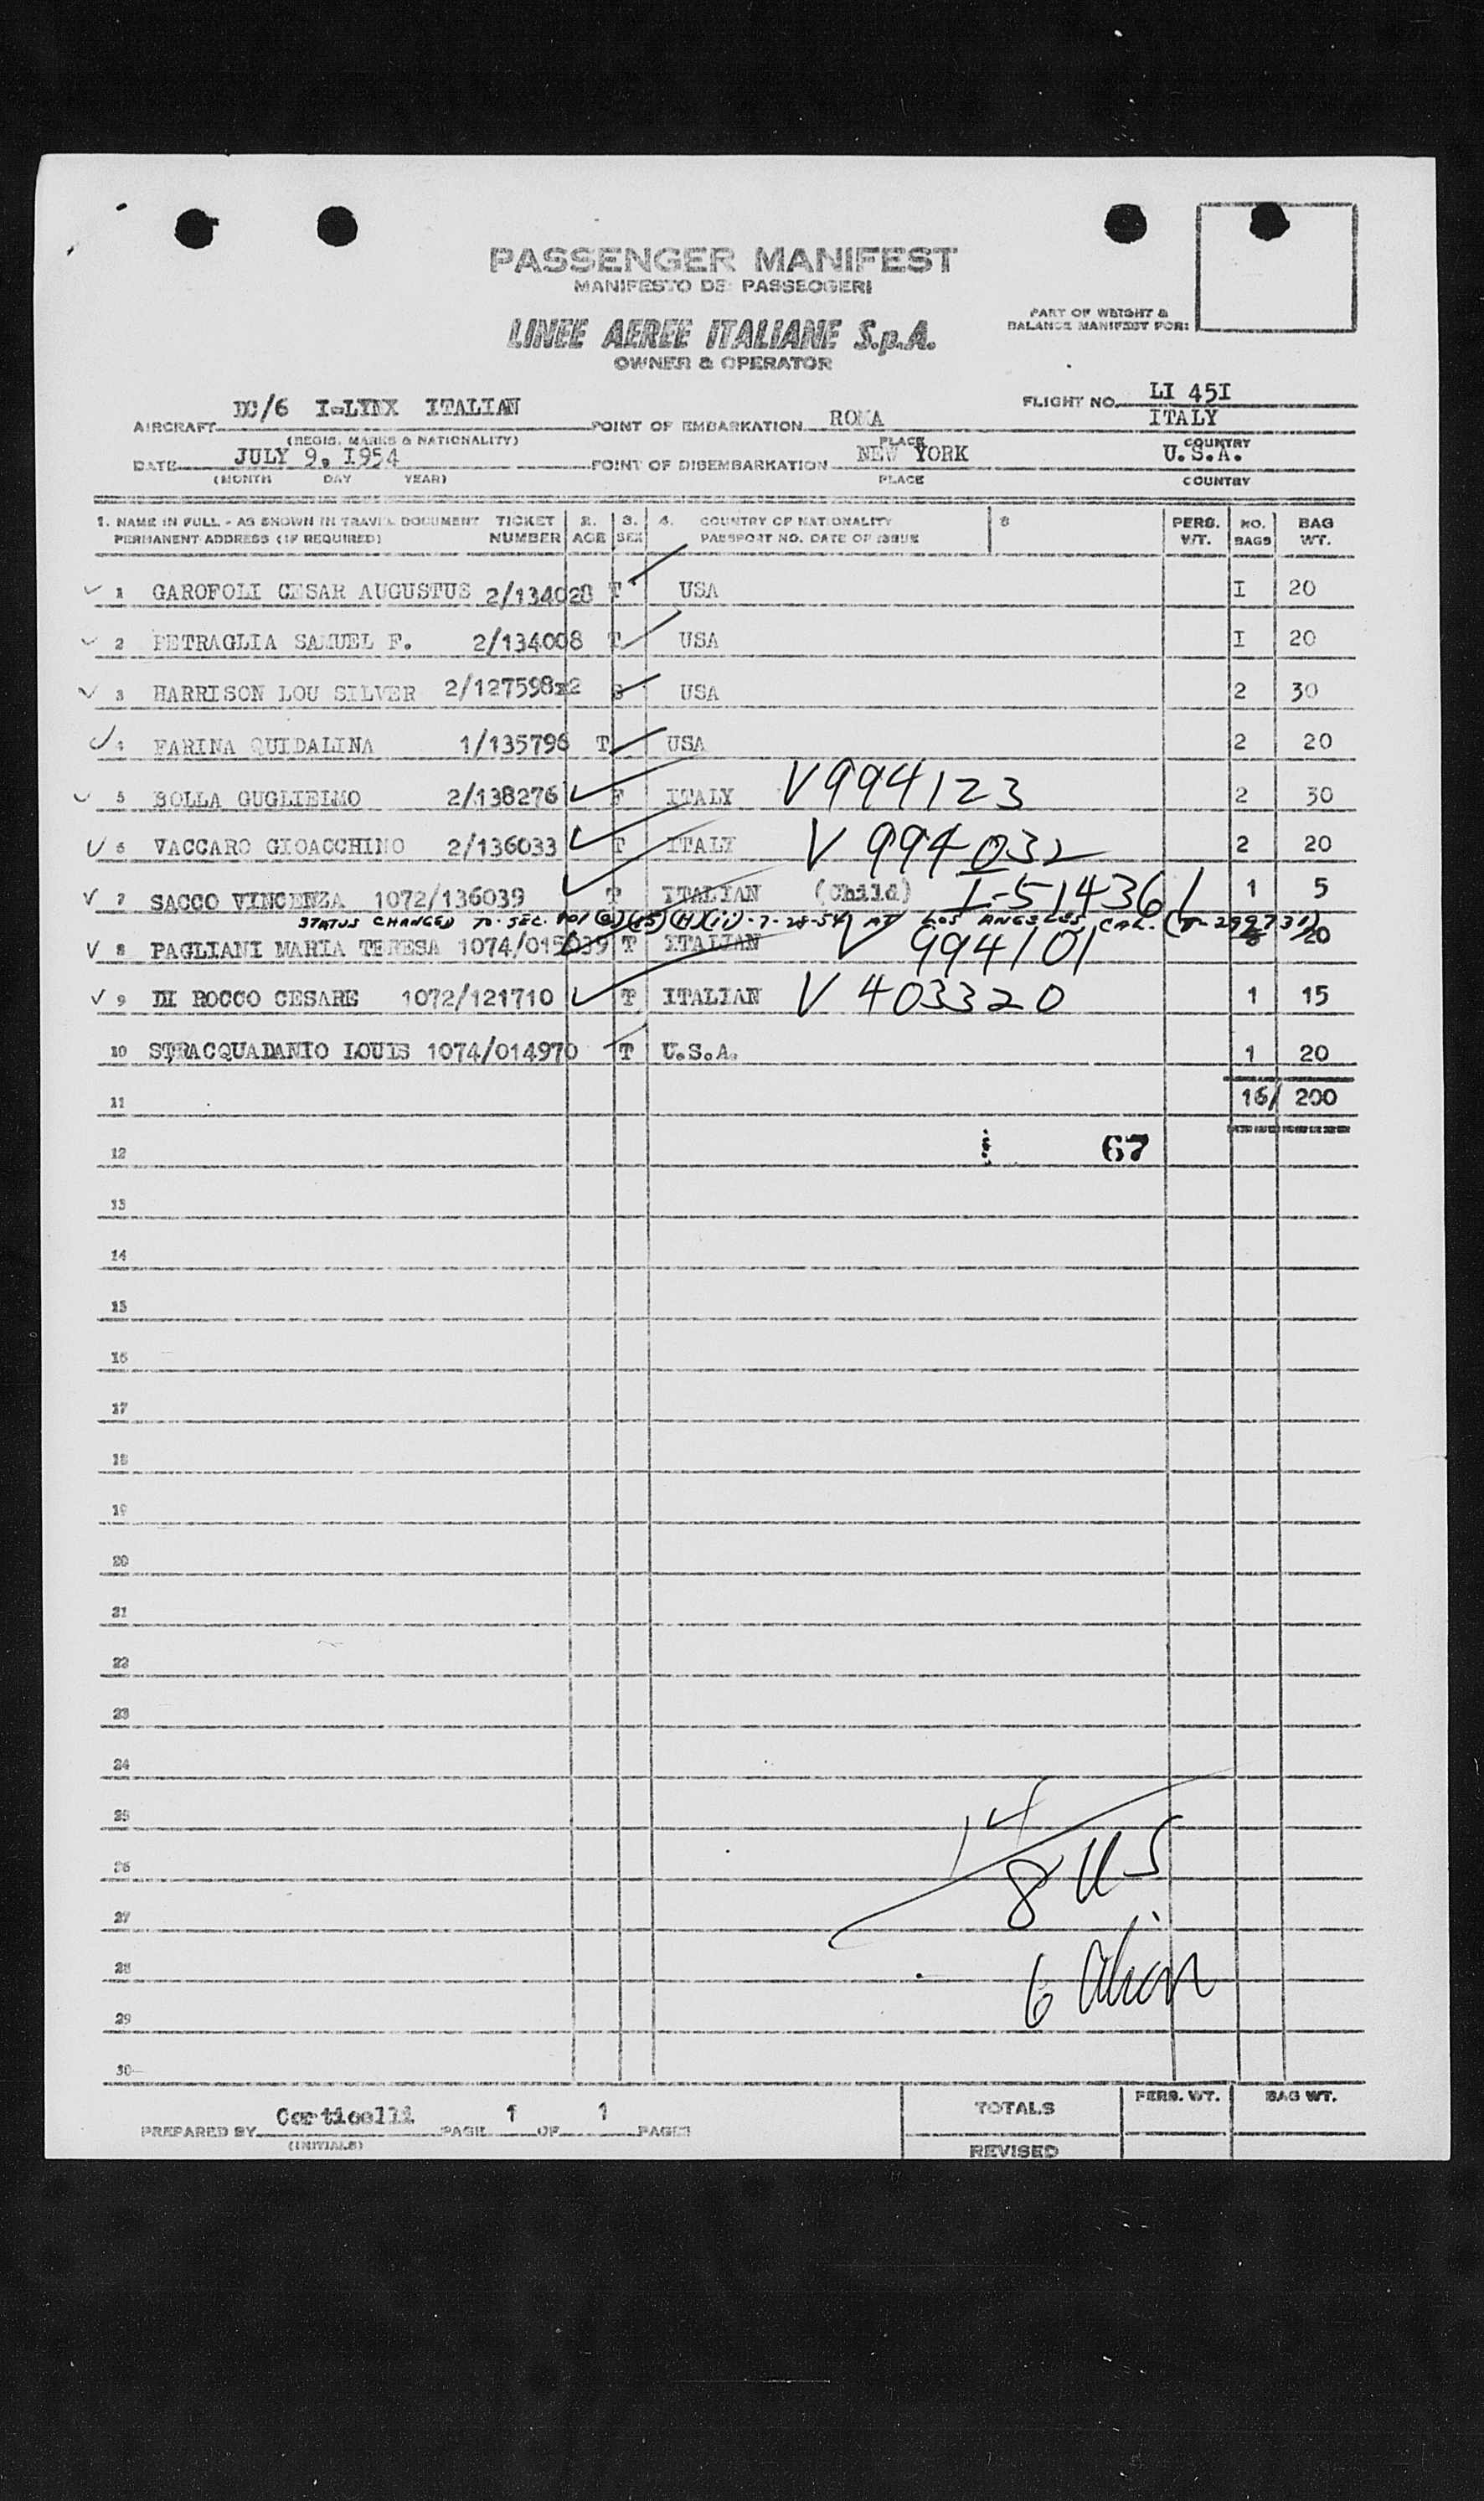 PASSENGER MANIFEST
MANIFESTO DE PASSEGGERI
LINEE AEREE ITALIANE S.p.A.
OWNER & OPERATOR
PART OF WEIGHT &
BALANCE MANIFEST FOR:
AIRCRAFT DC/6 I-LYNX ITALIAN
(REGIS. MARKS & NATIONALITY)
FLIGHT NO. LI 45I
POINT OF EMBARKATION ROMA ITALY
PLACE COUNTRY
DATE JULY 9, I954
(MONTH DAY YEAR)
POINT OF DISEMBARKATION NEW YORK U.S.A.
PLACE COUNTRY
1. NAME IN FULL - AS SHOWN IN TRAVEL DOCUMENT TICKET 2. 3. 4. COUNTRY OF NATIONALITY PERS. NO. BAG
PERMANENT ADDRESS (IF REQUIRED) NUMBER AGE SEX PASSPORT NO. DATE OF ISSUE WT. BAGS WT.
1 GAROFOLI CESAR AUGUSTUS 2/134028 T USA I 20
2 PETRAGLIA SAMUEL F. 2/134008 T USA I 20
3 HARRISON LOU SILVER 2/127598x2 USA 2 30
4 FARINA QUIDALINA 1/135796 T USA 2 20
5 BOLLA GUGLIELMO 2/138276 F ITALY V994123 2 30
6 VACCARO GIOACCHINO 2/136033 T ITALY V 994032 2 20
7 SACCO VINCENZA 1072/136039 T ITALIAN (Child) I-514361 1 5
STATUS CHANGED TO SEC. 101(a)(15)(H)(ii)-7-28-54 AT LOS ANGELES, CAL.
8 PAGLIANI MARIA TERESA 1074/015039 T ITALIAN V 994101 20
9 DI ROCCO CESARE 1072/121710 T ITALIAN V 403320 1 15
10 STRACQUADANIO LOUIS 1074/014970 T U.S.A. 1 20
11 16/ 200
12 67
13
14
15
16
17
18
19
20
21
22
23
24
25 14
26 8 US
27
28 6 alien
29
30
PREPARED BY Corticelli PAGE 1 OF 1 PAGES
(INITIALS)
TOTALS PERS. WT. BAG WT.
REVISED